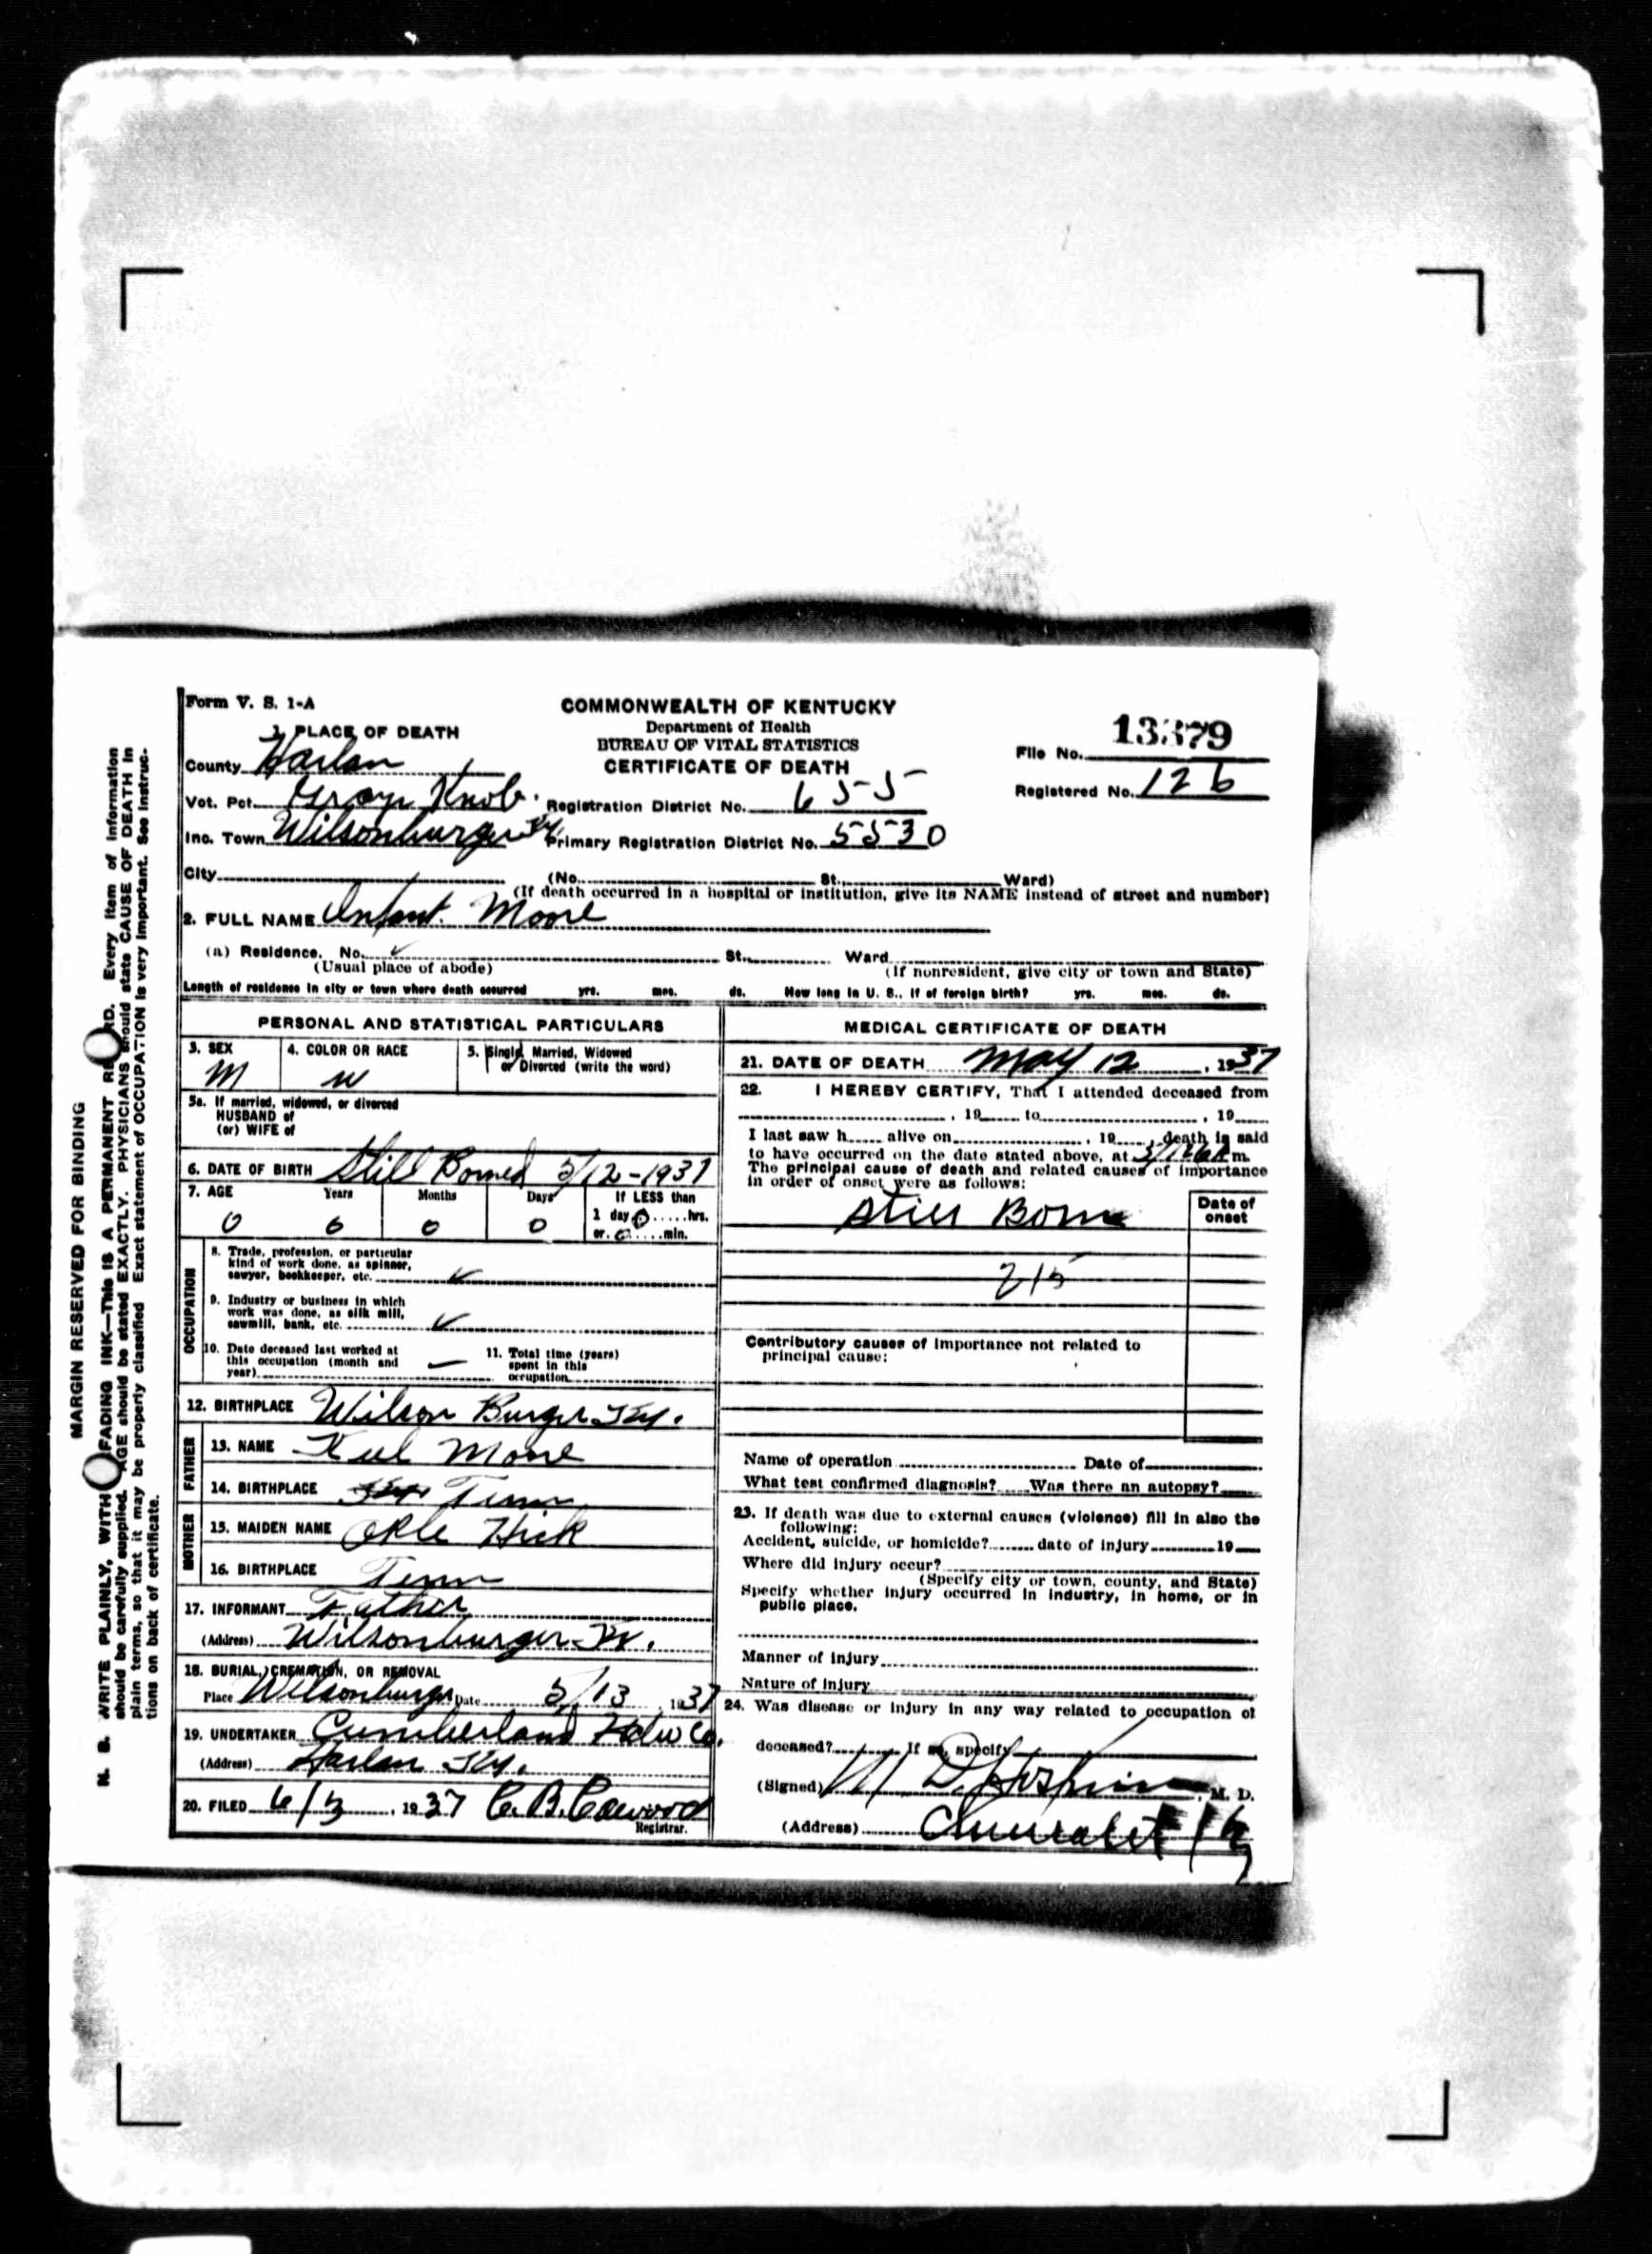 Form V. S. 1-A
COMMONWEALTH OF KENTUCKY
Department of Health
BUREAU OF VITAL STATISTICS
CERTIFICATE OF DEATH
File No. 13379
Registered No. 126
1. PLACE OF DEATH
County Harlan
Vot. Pct. Grays Knob. Registration District No. 655
Inc. Town Wilsonburger Ky. Primary Registration District No. 5530
City (No. St. Ward)
(If death occurred in a hospital or institution, give its NAME instead of street and number)
2. FULL NAME Infant. Moore
(a) Residence. No. ✓ St. Ward
(Usual place of abode) (If nonresident, give city or town and State)
Length of residence in city or town where death occurred yrs. mos. ds. How long in U. S., if of foreign birth? yrs. mos. ds.
PERSONAL AND STATISTICAL PARTICULARS
3. SEX 4. COLOR OR RACE 5. Single, Married, Widowed
or Divorced (write the word)
M W
5a. If married, widowed, or divorced
HUSBAND of
(or) WIFE of
6. DATE OF BIRTH Still Borned 5/12-1937
7. AGE Years Months Days If LESS than
1 day 0 hrs.
or 0 min.
0 0 0 0
OCCUPATION
8. Trade, profession, or particular
kind of work done, as spinner,
sawyer, bookkeeper, etc. ✓
9. Industry or business in which
work was done, as silk mill,
sawmill, bank, etc. ✓
10. Date deceased last worked at
this occupation (month and
year) —
11. Total time (years)
spent in this
occupation
12. BIRTHPLACE Wilson Burger Ky.
FATHER
13. NAME Moore
14. BIRTHPLACE Tenn
MOTHER
15. MAIDEN NAME Okle Hick
16. BIRTHPLACE Tenn
17. INFORMANT Father
(Address) Wilsonburger Ky.
18. BURIAL, CREMATION, OR REMOVAL
Place Wilsonburger Date 5/13, 1937
19. UNDERTAKER Cumberland Hdw Co.
(Address) Harlan Ky.
20. FILED 6/3, 1937 C. B. Cawood
Registrar.
MEDICAL CERTIFICATE OF DEATH
21. DATE OF DEATH May 12, 1937
22. I HEREBY CERTIFY, That I attended deceased from
, 19 to , 19
I last saw h alive on , 19 , death is said
to have occurred on the date stated above, at m.
The principal cause of death and related causes of importance
in order of onset were as follows:
Date of
onset
Still Born
215
Contributory causes of importance not related to
principal cause:
Name of operation Date of
What test confirmed diagnosis? Was there an autopsy?
23. If death was due to external causes (violence) fill in also the
following:
Accident, suicide, or homicide? date of injury 19
Where did injury occur?
(Specify city or town, county, and State)
Specify whether injury occurred in industry, in home, or in
public place.
Manner of injury
Nature of injury
24. Was disease or injury in any way related to occupation of
deceased? If so, specify
(Signed) M. D.
(Address) Chevrolet Ky
MARGIN RESERVED FOR BINDING
N. B. WRITE PLAINLY, WITH UNFADING INK—This IS A PERMANENT RECORD. Every item of information
should be carefully supplied. AGE should be stated EXACTLY. PHYSICIANS should state CAUSE OF DEATH in
plain terms, so that it may be properly classified. Exact statement of OCCUPATION is very important. See instruc-
tions on back of certificate.